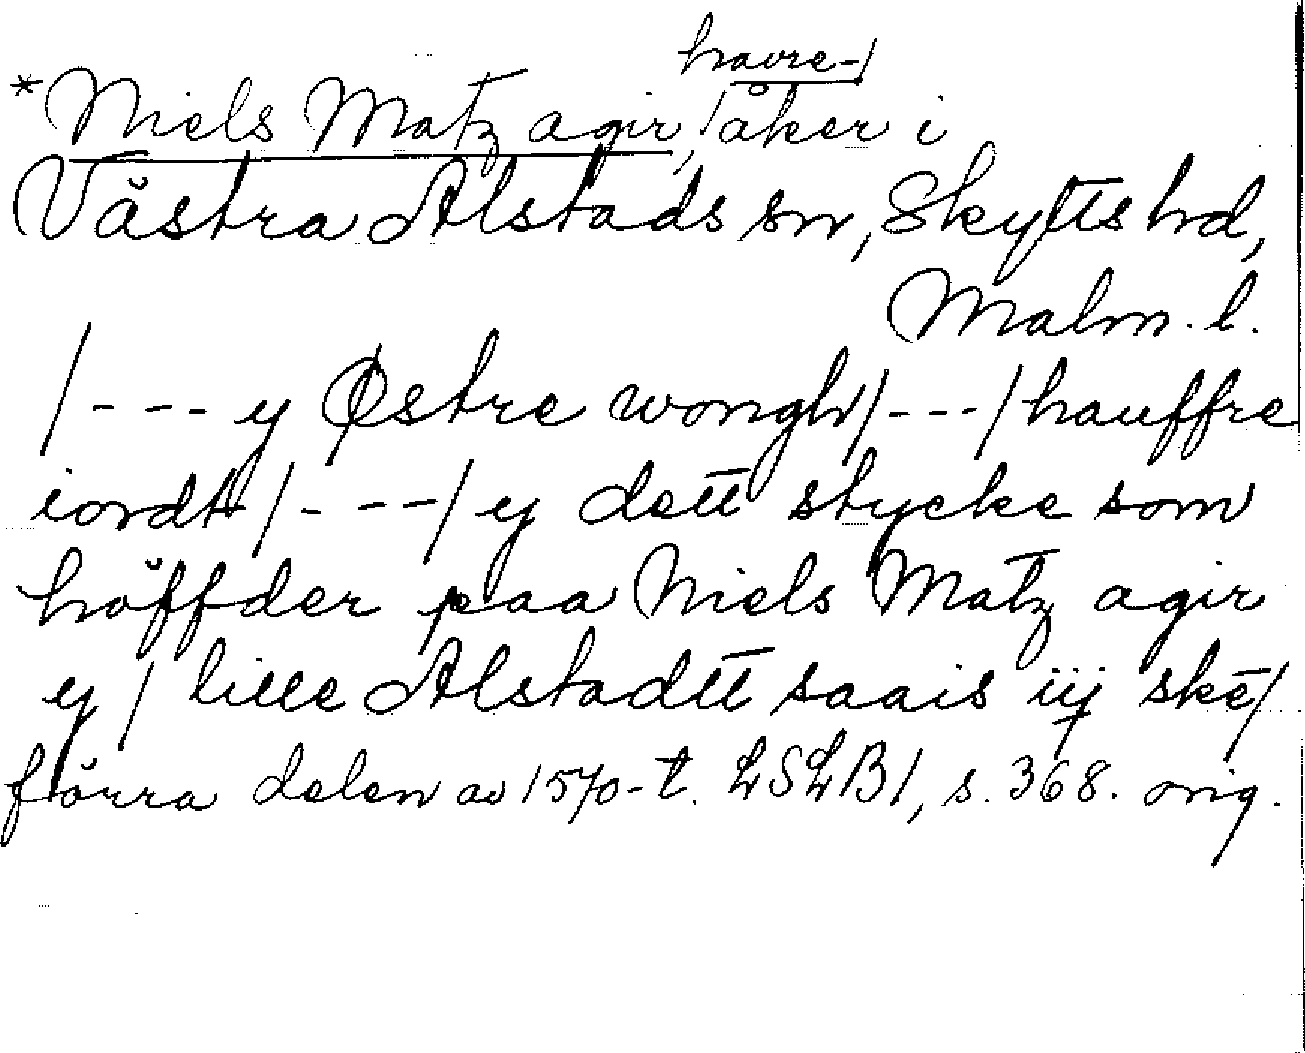 havre-/
*Niels Matz agir, /åker i
Västra Alstads sn, Skytts hd,
Malm. l.
/--- y Østre wongh/---/hauffre
iordt/---/y dett stycke som
höffder paa Niels Matz agir
y/lille Alstadtt saais iij ske/
förra delen av 1570-t. LSLB1, s. 368. orig.